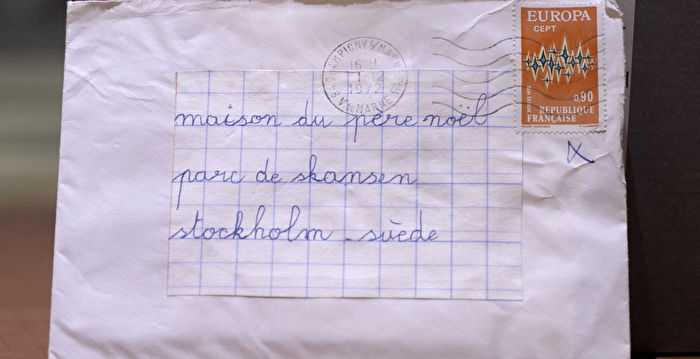 maison du père noël
parc de skansen
stockholm - suède
EUROPA
CEPT
0,90
REPUBLIQUE
FRANÇAISE
CHAMPIGNY S/MARNE
16 H
1 - 12
1972
VAL DE MARNE